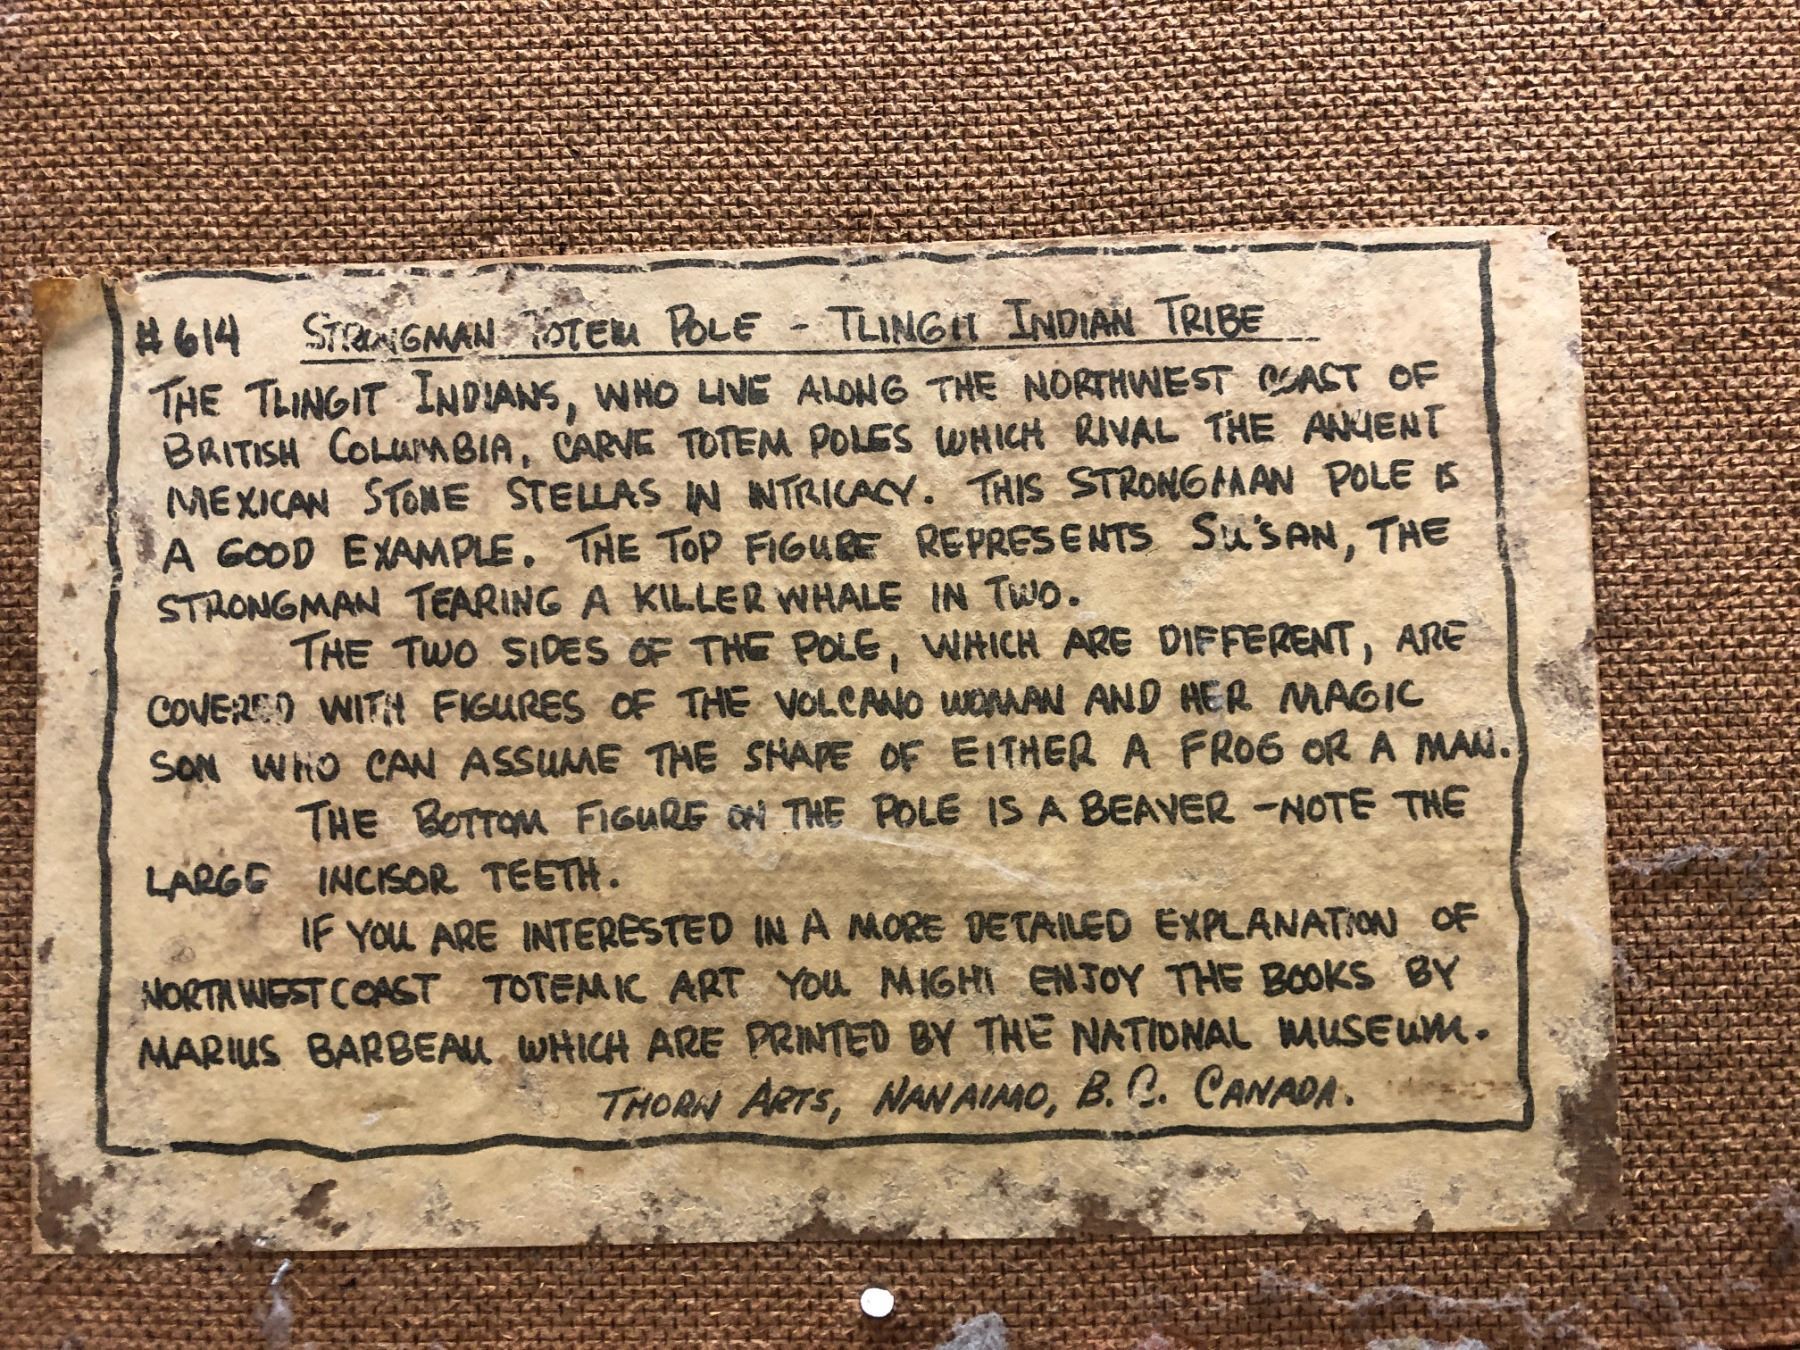 #614 STRONGMAN TOTEM POLE - TLINGIT INDIAN TRIBE
THE TLINGIT INDIANS, WHO LIVE ALONG THE NORTHWEST COAST OF
BRITISH COLUMBIA, CARVE TOTEM POLES WHICH RIVAL THE ANCIENT
MEXICAN STONE STELLAS IN INTRICACY. THIS STRONGMAN POLE IS
A GOOD EXAMPLE. THE TOP FIGURE REPRESENTS SU'SAN, THE
STRONGMAN TEARING A KILLER WHALE IN TWO.
THE TWO SIDES OF THE POLE, WHICH ARE DIFFERENT, ARE
COVERED WITH FIGURES OF THE VOLCANO WOMAN AND HER MAGIC
SON WHO CAN ASSUME THE SHAPE OF EITHER A FROG OR A MAN.
THE BOTTOM FIGURE ON THE POLE IS A BEAVER -NOTE THE
LARGE INCISOR TEETH.
IF YOU ARE INTERESTED IN A MORE DETAILED EXPLANATION OF
NORTHWEST COAST TOTEMIC ART YOU MIGHT ENJOY THE BOOKS BY
MARIUS BARBEAU WHICH ARE PRINTED BY THE NATIONAL MUSEUM.
THORN ARTS, NANAIMO, B.C. CANADA.